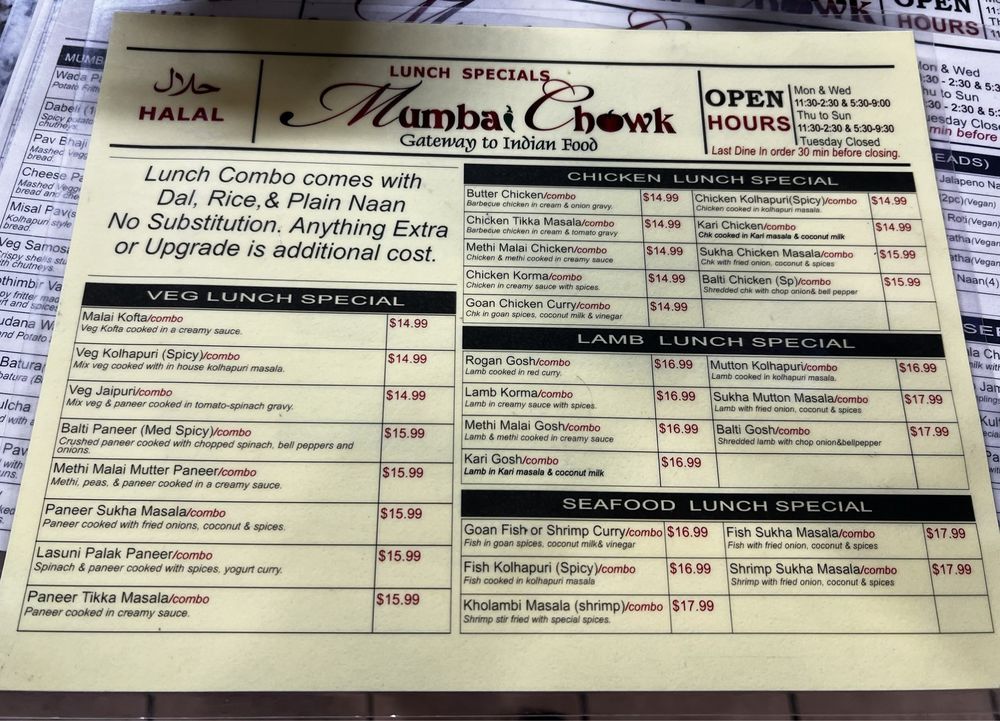 حلال
HALAL
LUNCH SPECIALS
Mumbai Chowk
Gateway to Indian Food
OPEN
HOURS
Mon & Wed
11:30-2:30 & 5:30-9:00
Thu to Sun
11:30-2:30 & 5:30-9:30
Tuesday Closed
Last Dine In order 30 min before closing.
Lunch Combo comes with
Dal, Rice,& Plain Naan
No Substitution. Anything Extra
or Upgrade is additional cost.
VEG LUNCH SPECIAL
Malai Kofta/combo $14.99
Veg Kofta cooked in a creamy sauce.
Veg Kolhapuri (Spicy)/combo $14.99
Mix veg cooked with in house kolhapuri masala.
Veg Jaipuri/combo $14.99
Mix veg & paneer cooked in tomato-spinach gravy.
Balti Paneer (Med Spicy)/combo $15.99
Crushed paneer cooked with chopped spinach, bell peppers and
onions.
Methi Malai Mutter Paneer/combo $15.99
Methi, peas, & paneer cooked in a creamy sauce.
Paneer Sukha Masala/combo $15.99
Paneer cooked with fried onions, coconut & spices.
Lasuni Palak Paneer/combo $15.99
Spinach & paneer cooked with spices, yogurt curry.
Paneer Tikka Masala/combo $15.99
Paneer cooked in creamy sauce.
CHICKEN LUNCH SPECIAL
Butter Chicken/combo $14.99
Barbecue chicken in cream & onion gravy.
Chicken Kolhapuri(Spicy)/combo $14.99
Chicken cooked in kolhapuri masala.
Chicken Tikka Masala/combo $14.99
Barbecue chicken in cream & tomato gravy
Kari Chicken/combo $14.99
Chk cooked in Kari masala & coconut milk
Methi Malai Chicken/combo $14.99
Chicken & methi cooked in creamy sauce
Sukha Chicken Masala/combo $15.99
Chk with fried onion, coconut & spices
Chicken Korma/combo $14.99
Chicken in creamy sauce with spices.
Balti Chicken (Sp)/combo $15.99
Shredded chk with chop onion& bell pepper
Goan Chicken Curry/combo $14.99
Chk in goan spices, coconut milk & vinegar
LAMB LUNCH SPECIAL
Rogan Gosh/combo $16.99
Lamb cooked in red curry.
Mutton Kolhapuri/combo $16.99
Lamb cooked in kolhapuri masala.
Lamb Korma/combo $16.99
Lamb in creamy sauce with spices.
Sukha Mutton Masala/combo $17.99
Lamb with fried onion, coconut & spices
Methi Malai Gosh/combo $16.99
Lamb & methi cooked in creamy sauce
Balti Gosh/combo $17.99
Shredded lamb with chop onion&bellpepper
Kari Gosh/combo $16.99
Lamb in Kari masala & coconut milk
SEAFOOD LUNCH SPECIAL
Goan Fish or Shrimp Curry/combo $16.99
Fish in goan spices, coconut milk& vinegar
Fish Sukha Masala/combo $17.99
Fish with fried onion, coconut & spices
Fish Kolhapuri (Spicy)/combo $16.99
Fish cooked in kolhapuri masala
Shrimp Sukha Masala/combo $17.99
Shrimp with fried onion, coconut & spices
Kholambi Masala (shrimp)/combo $17.99
Shrimp stir fried with special spices.